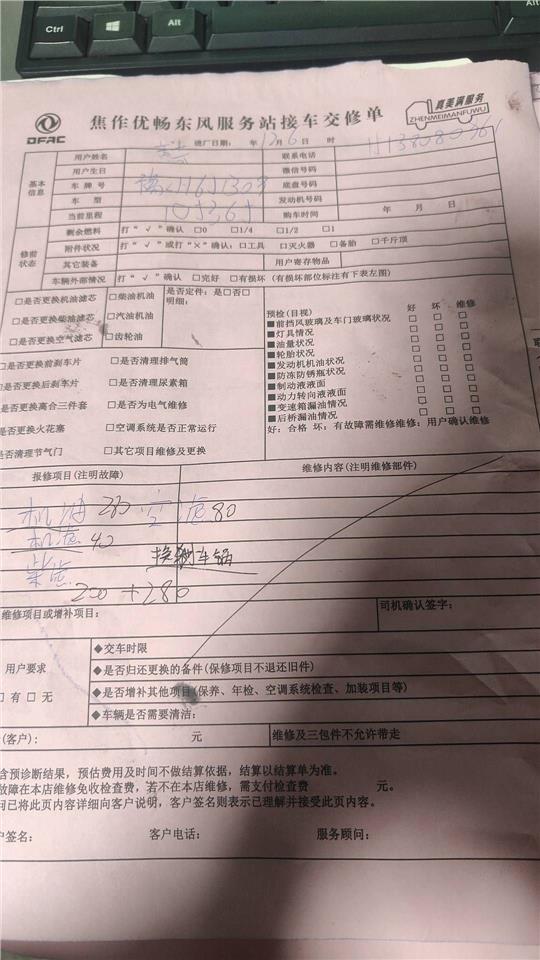 Ctrl
Alt
Alt
DFAC
焦作优畅东风服务站接车交修单
真美满服务
ZHENMEIMANFUWU
进厂日期: 年 12月 6日 时
基本信息
用户姓名
联系电话
用户生日
微信号码
车 牌 号
底盘号码
车 型
发动机号码
当前里程
购车时间 年 月 日
修前状态
剩余燃料 打“√”确认 □0 □1/4 □1/2 □1
附件状况 打“√”或打“×”确认:□工具 □灭火器 □备胎 □千斤顶
其它装备
用户寄存物品
车辆外部情况 打“√”确认 □完好 □有损坏（有损坏部位标注有下表左图）
□是否更换机油滤芯 □柴油机油
是否定件: 是□否□
明细:
□是否更换柴油滤芯 □汽油机油
□是否更换空气滤芯 □齿轮油
□是否更换前刹车片 □是否清理排气筒
□是否更换后刹车片 □是否清理尿素箱
是否更换离合三件套 □是否为电气维修
是否更换火花塞 □空调系统是否正常运行
是否清理节气门 □其它项目维修及更换
预检(目视) 好 坏 维修
■前挡风玻璃及车门玻璃状况 □ □ □
■灯具情况 □ □ □
■油量状况 □ □ □
■轮胎状况 □ □ □
■发动机机油状况 □ □ □
■防冻防锈瓶状况 □ □ □
■制动液液面 □ □ □
■动力转向液液面 □ □ □
■变速箱漏油情况 □ □ □
■后桥漏油情况 □ □ □
好: 合格 坏: 有故障需维修维修: 用户确认维修
报修项目(注明故障)
维修内容(注明维修部件)
机油 280 空滤 80
机滤 40
柴滤
200 +280
维修项目或增补项目:
司机确认签字:
用户要求
□有 □无
◆交车时限
◆是否归还更换的备件(保修项目不退还旧件)
◆是否增补其他项目(保养、年检、空调系统检查、加装项目等)
◆车辆是否需要清洁:
(客户): 元
维修及三包件不允许带走
含预诊断结果，预估费用及时间不做结算依据，结算以结算单为准。
故障在本店维修免收检查费，若不在本店维修，需支付检查费 元。
问已将此页内容详细向客户说明，客户签名则表示已理解并接受此页内容。
户签名:
客户电话:
服务顾问: